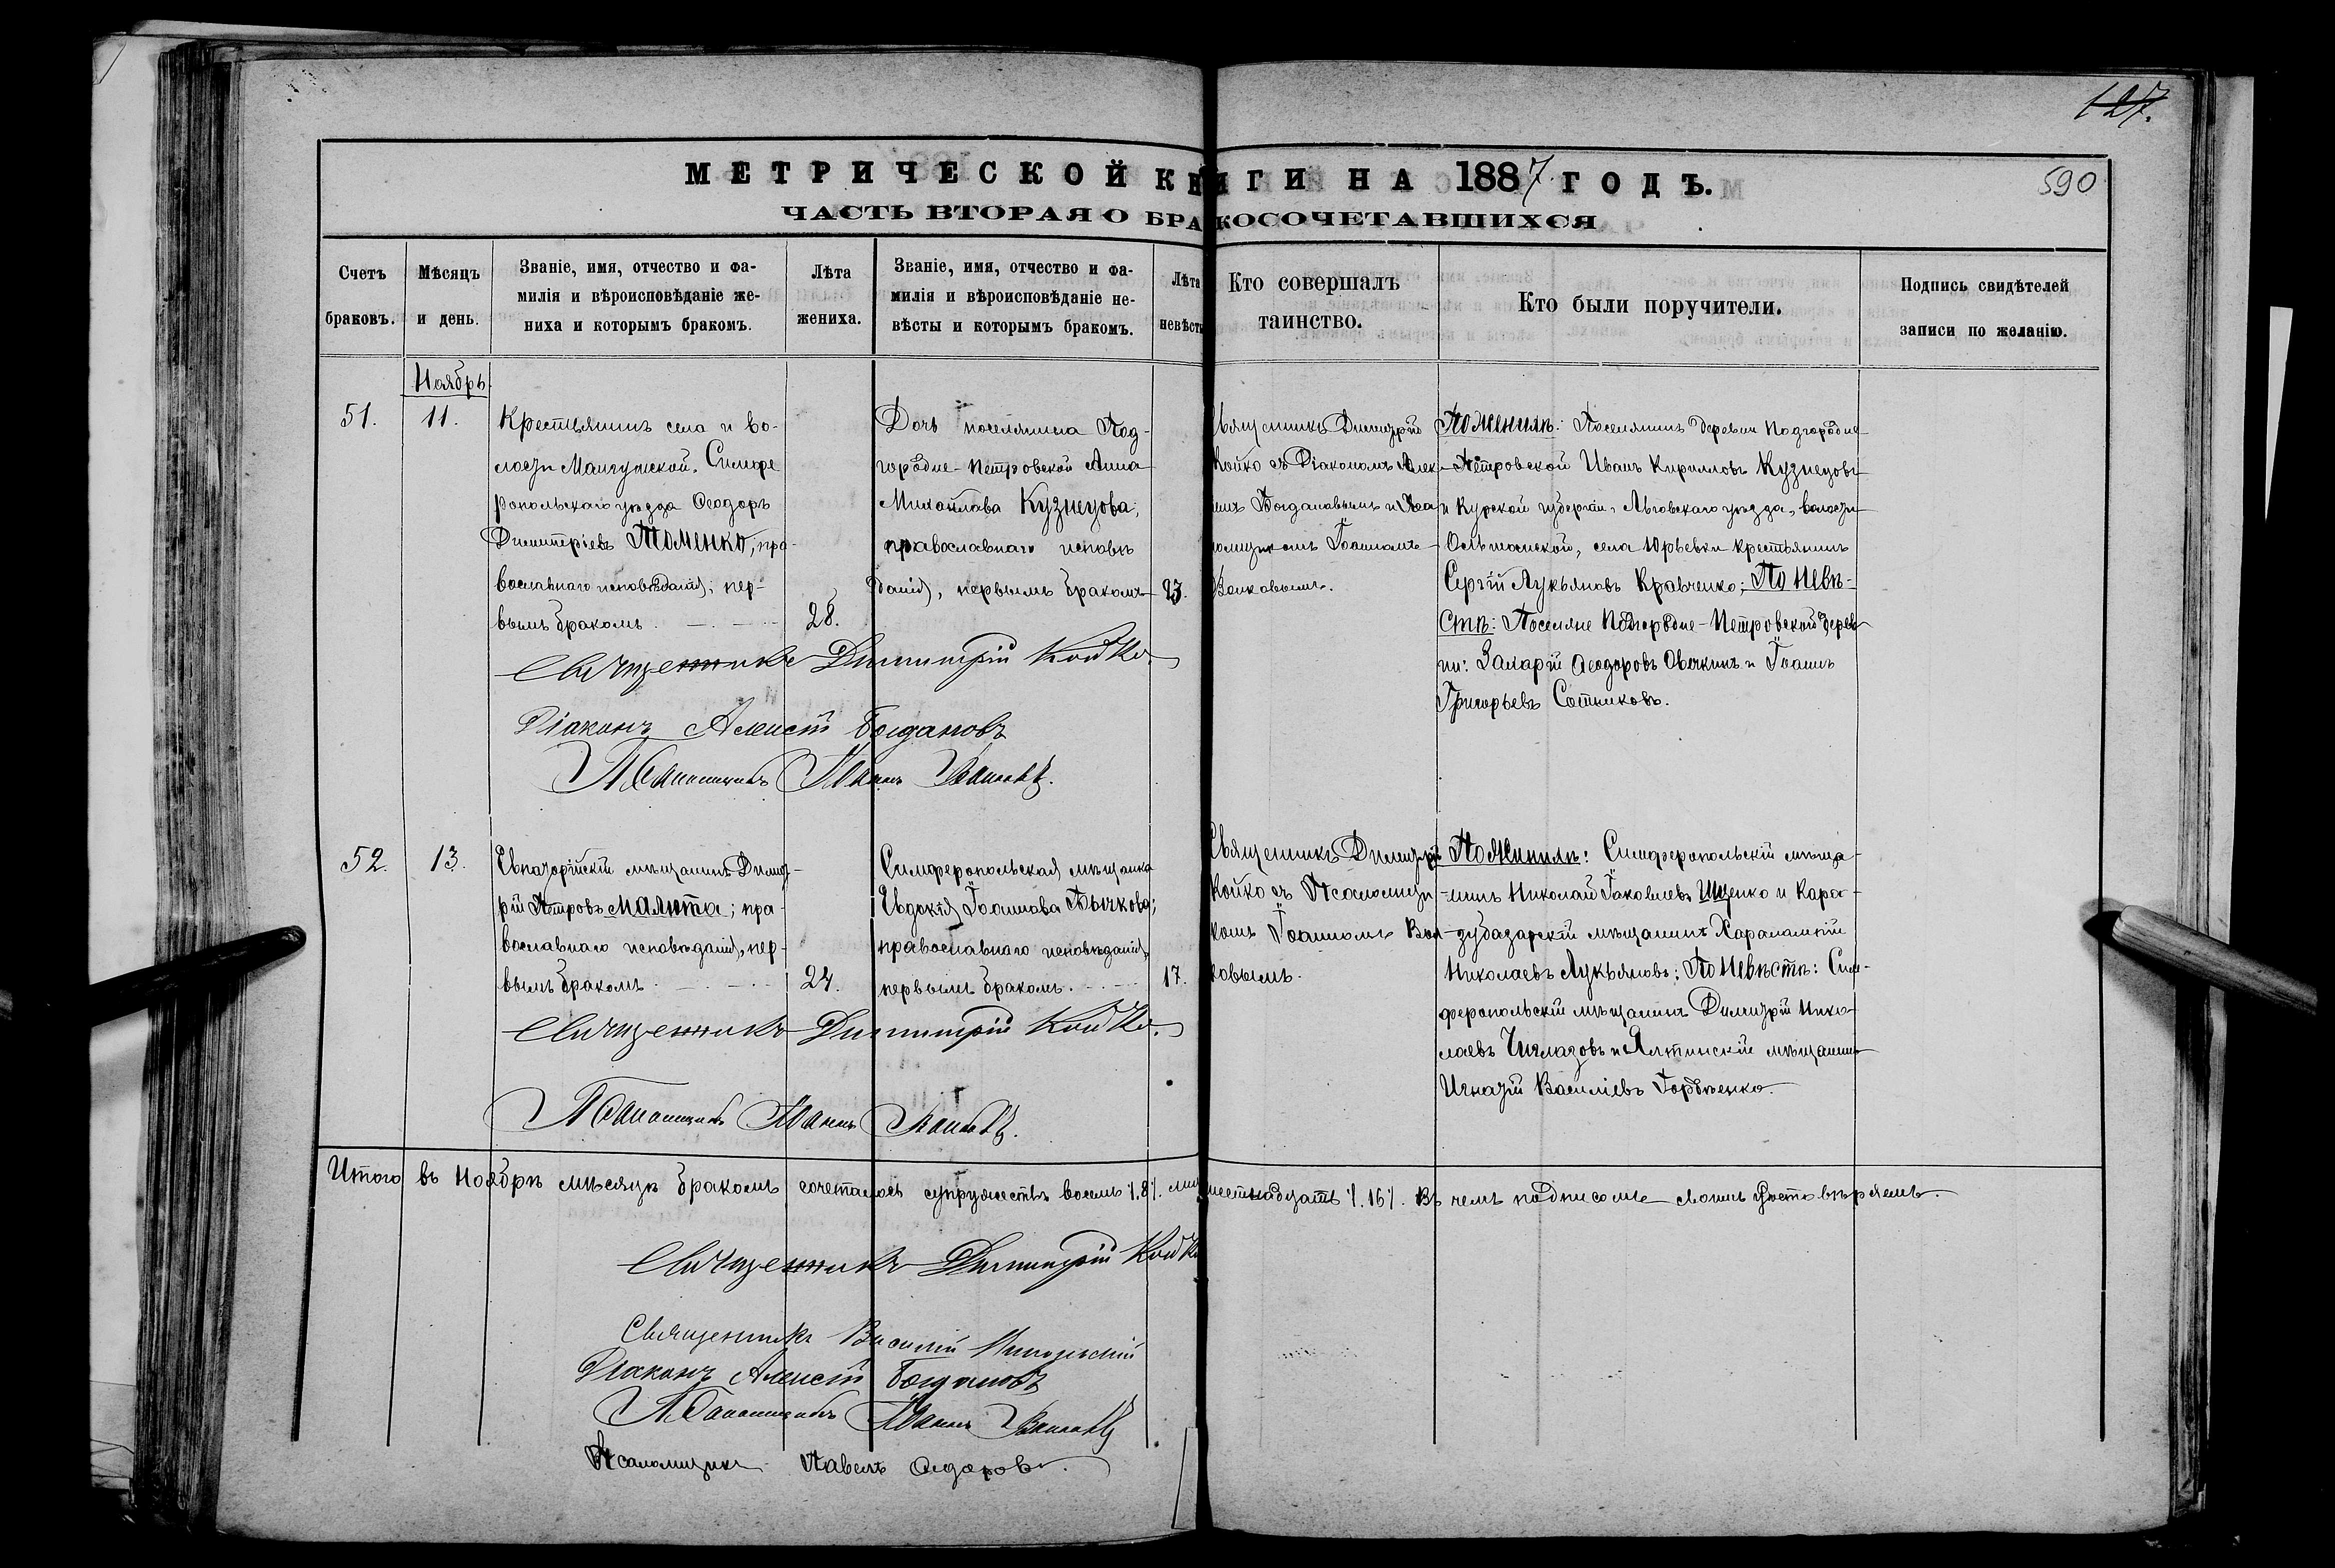 127.
МЕТРИЧЕСКОЙ КНИГИ НА 1887 ГОДЪ.
590
ЧАСТЬ ВТОРАЯ О БРАКОСОЧЕТАВШИХСЯ
Счетъ
браковъ.
Мѣсяцъ
и день.
Званіе, имя, отчество и фа-
милія и вѣроисповѣданіе же-
ниха и которымъ бракомъ.
Лѣта
жениха.
Званіе, имя, отчество и фа-
милія и вѣроисповѣданіе не-
вѣсты и которымъ бракомъ.
Лѣта
невѣсты
Кто совершалъ
таинство.
Кто были поручители.
Подпись свидѣтелей
записи по желанію.
Ноябрь
51.
11.
Крестьянинъ села и во-
лости Мангушской, Симфе
ропольскаго уѣзда Ѳеодоръ
Димитріевъ Томенко, пра-
вославнаго исповѣданія; пер-
вымъ бракомъ
28.
Дочь поселянина Под-
городне-Петровской Анна
Михайлова Кузнецова,
православнаго исповѣ
данія, первымъ бракомъ
23.
Священникъ Димитрій
Койко съ Діакономъ Алек-
Богдановымъ и Пса
ломщикомъ Іоанномъ
Волковымъ.
По женихѣ: Поселянинъ деревни Подгородне
Петровской Иванъ Кирилловъ Кузнецовъ
и Курской губерніи, Льговскаго уѣзда, волости
Ольшанской, села Юрьевки крестьянинъ
Сергій Лукьяновъ Кравченко; По невѣ-
стѣ: Поселяне Подгородне-Петровской дерев
ни: Захарій Ѳеодоровъ Овечкинъ и Іоаннъ
Григорьевъ Сотниковъ.
Священникъ Димитрій Койко
Діаконъ Алексѣй Богдановъ
Псаломщикъ Иванъ Волковъ.
52.
13.
Евпаторійскій мѣщанинъ Димит-
рій Петровъ Малюта; пра-
вославнаго исповѣданія, пер-
вымъ бракомъ
24.
Симферопольская мѣщанка
Евдокія Іоаннова Бычкова;
православнаго исповѣданія,
первымъ бракомъ
17.
Священникъ Димитрій
Койко съ Псаломщи-
комъ Іоанномъ Вол-
ковымъ.
По женихѣ: Симферопольскій мѣща-
нинъ Николай Іаковлевъ Ищенко и Кара-
зубазарскій мѣщанинъ Харалампій
Николаевъ Лукьяновъ; По невѣстѣ: Сим-
феропольскій мѣщанинъ Димитрій Нико-
лаевъ и Ялтинскій мѣщанинъ
Игнатій Василіевъ Гордѣенко.
Священникъ Димитрій Койко.
Псаломщикъ Иванъ Волковъ.
Итого въ Ноябрѣ мѣсяцѣ бракомъ сочеталось супружествъ восемь /.8/. шестнадцать /.16/. Въ чемъ подписомъ своимъ удостовѣряемъ.
Священникъ Димитрій Койко
Священникъ Василій Никольскій
Діаконъ Алексѣй Богдановъ
Псаломщикъ Иванъ Волковъ
Псаломщикъ Павелъ